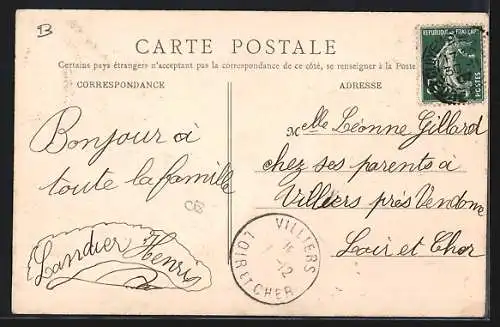 B
CARTE POSTALE
Certains pays étrangers n'acceptent pas la correspondance de ce côté, se renseigner à la Poste
CORRESPONDANCE
ADRESSE
REPUBLIQUE FRANÇAISE
POSTES
Bonjour à
toute la famille
Landier Henri
Melle Léonne Gillard
chez ses parents à
Villiers près Vendome
Loir et Cher
VILLIERS
12
LOIR ET CHER